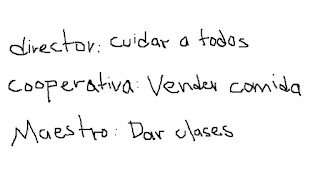 director: cuidar a todos
cooperativa: Vender comida
Maestro: Dar clases